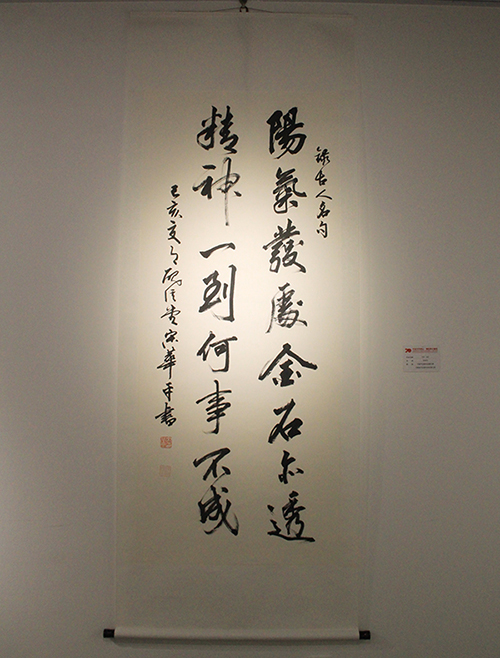 錄古人名句
陽氣發處金石亦透
精神一到何事不成
己亥夏月
宋華平書